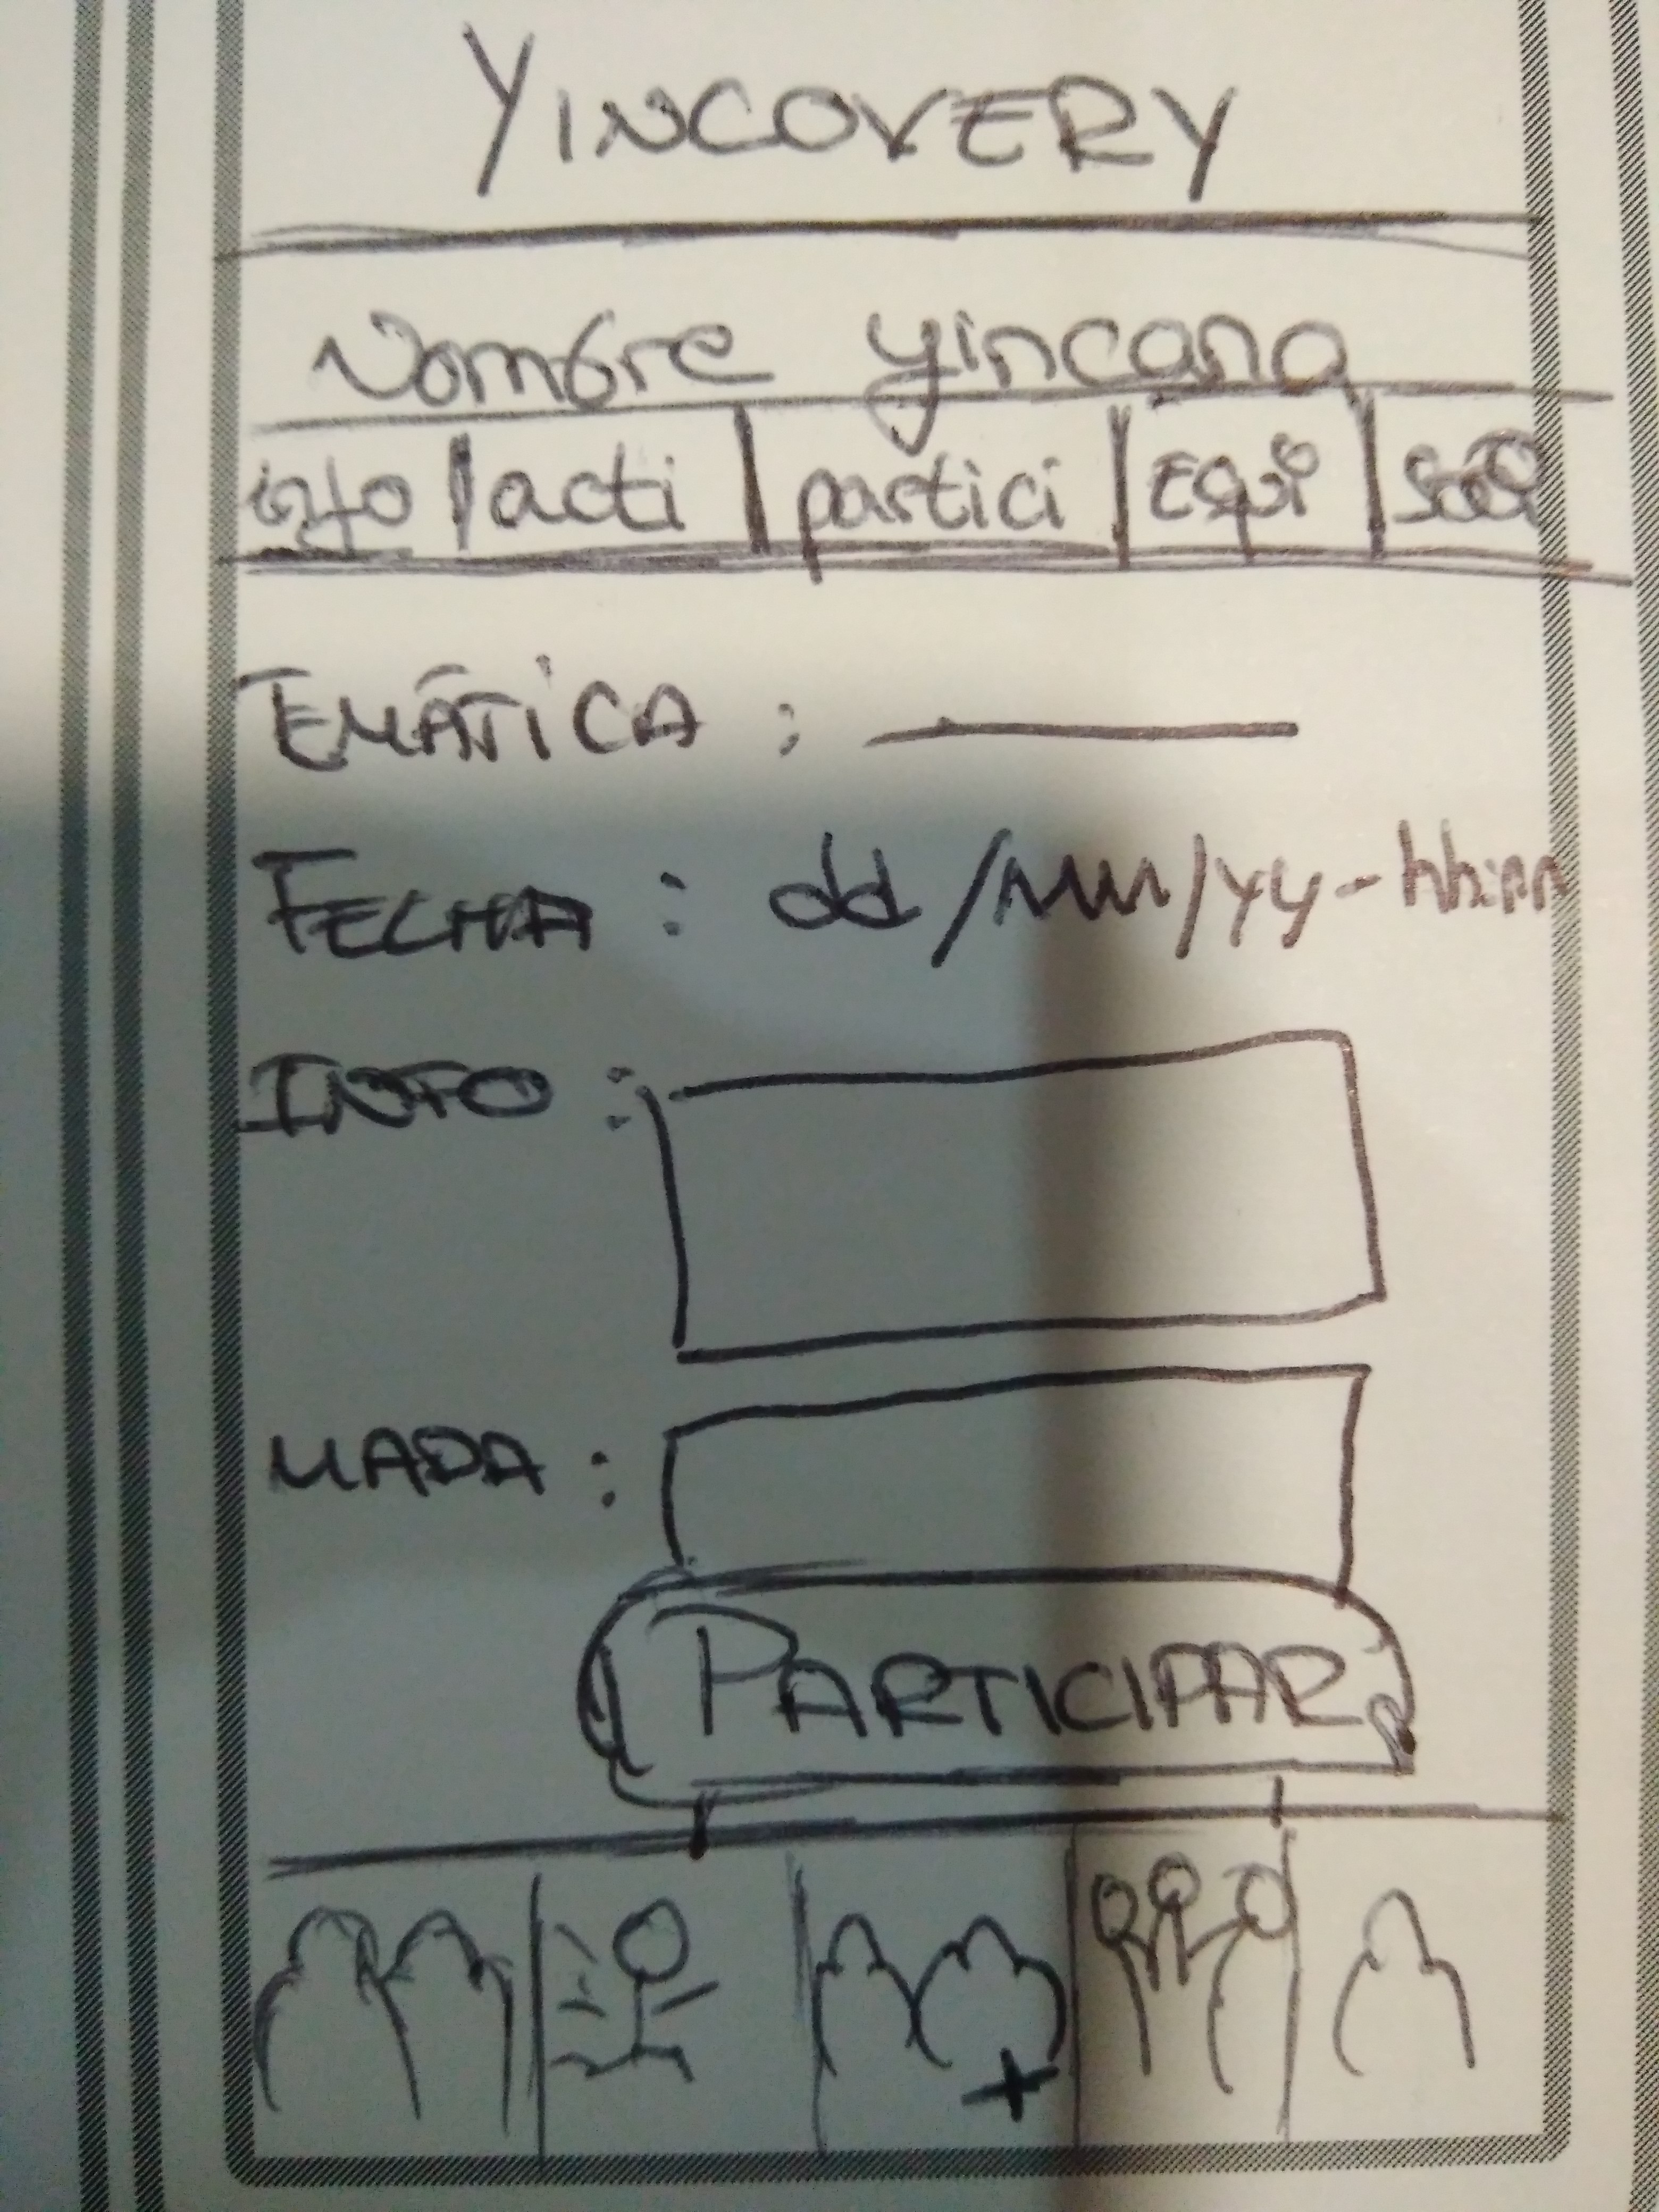 YINCOVERY
Nombre yincana
info | acti | partici | Equi |
TEMÁTICA :
FECHA : dd/MM/yy - hh:mm
INFO :
MAPA :
PARTICIPAR
+